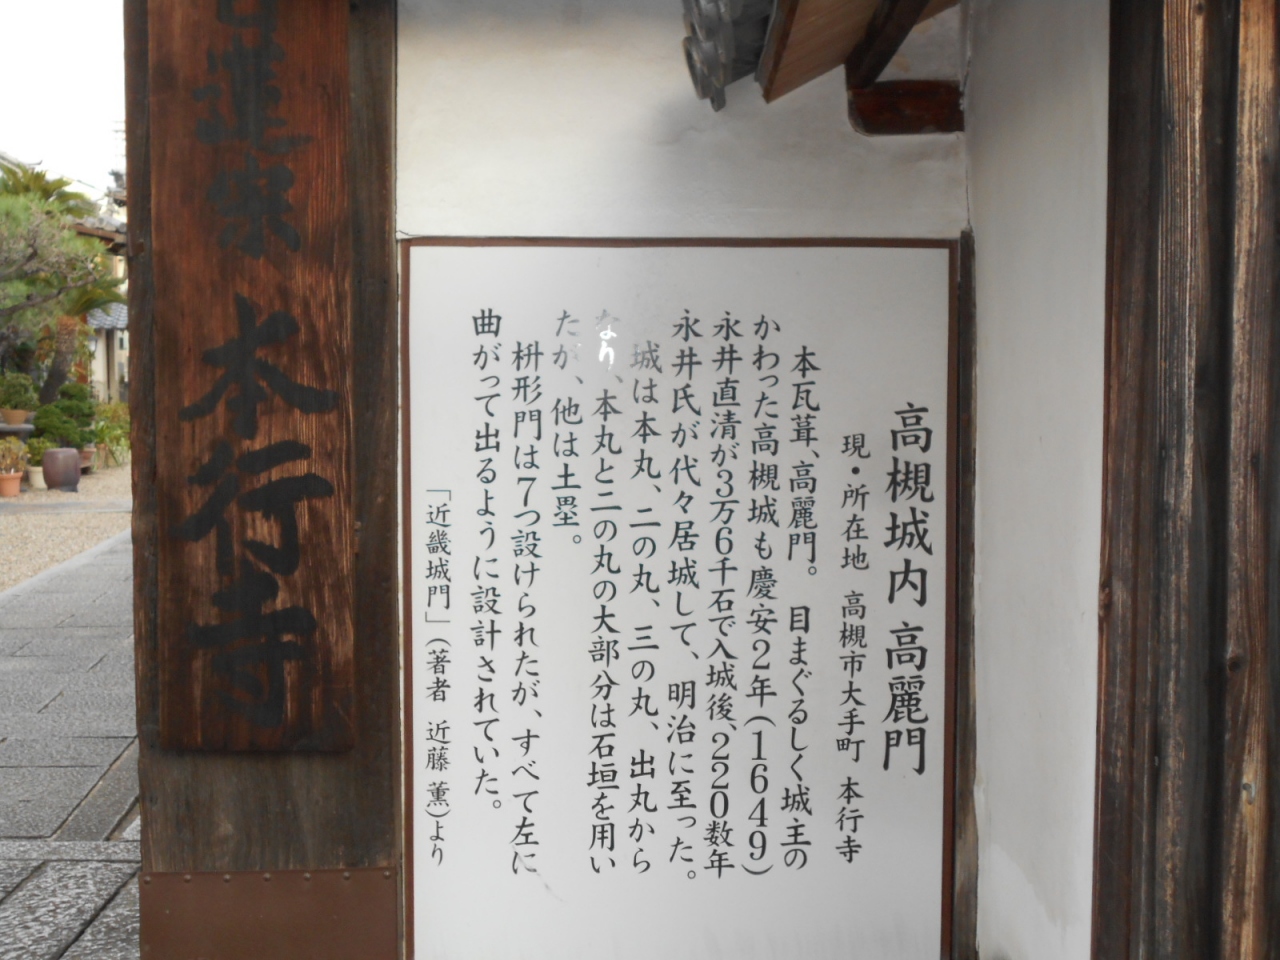 高槻城内 高麗門
現・所在地 高槻市大手町 本行寺
本瓦葺、高麗門。 目まぐるしく城主の
かわった高槻城も慶安2年(1649)
永井直清が3万6千石で入城後、220数年
永井氏が代々居城して、明治に至った。
城は本丸、二の丸、三の丸、出丸から
なり、本丸と二の丸の大部分は石垣を用い
たが、他は土塁。
枡形門は7つ設けられたが、すべて左に
曲がって出るように設計されていた。
「近畿城門」(著者 近藤 薫)より
日蓮宗 本行寺